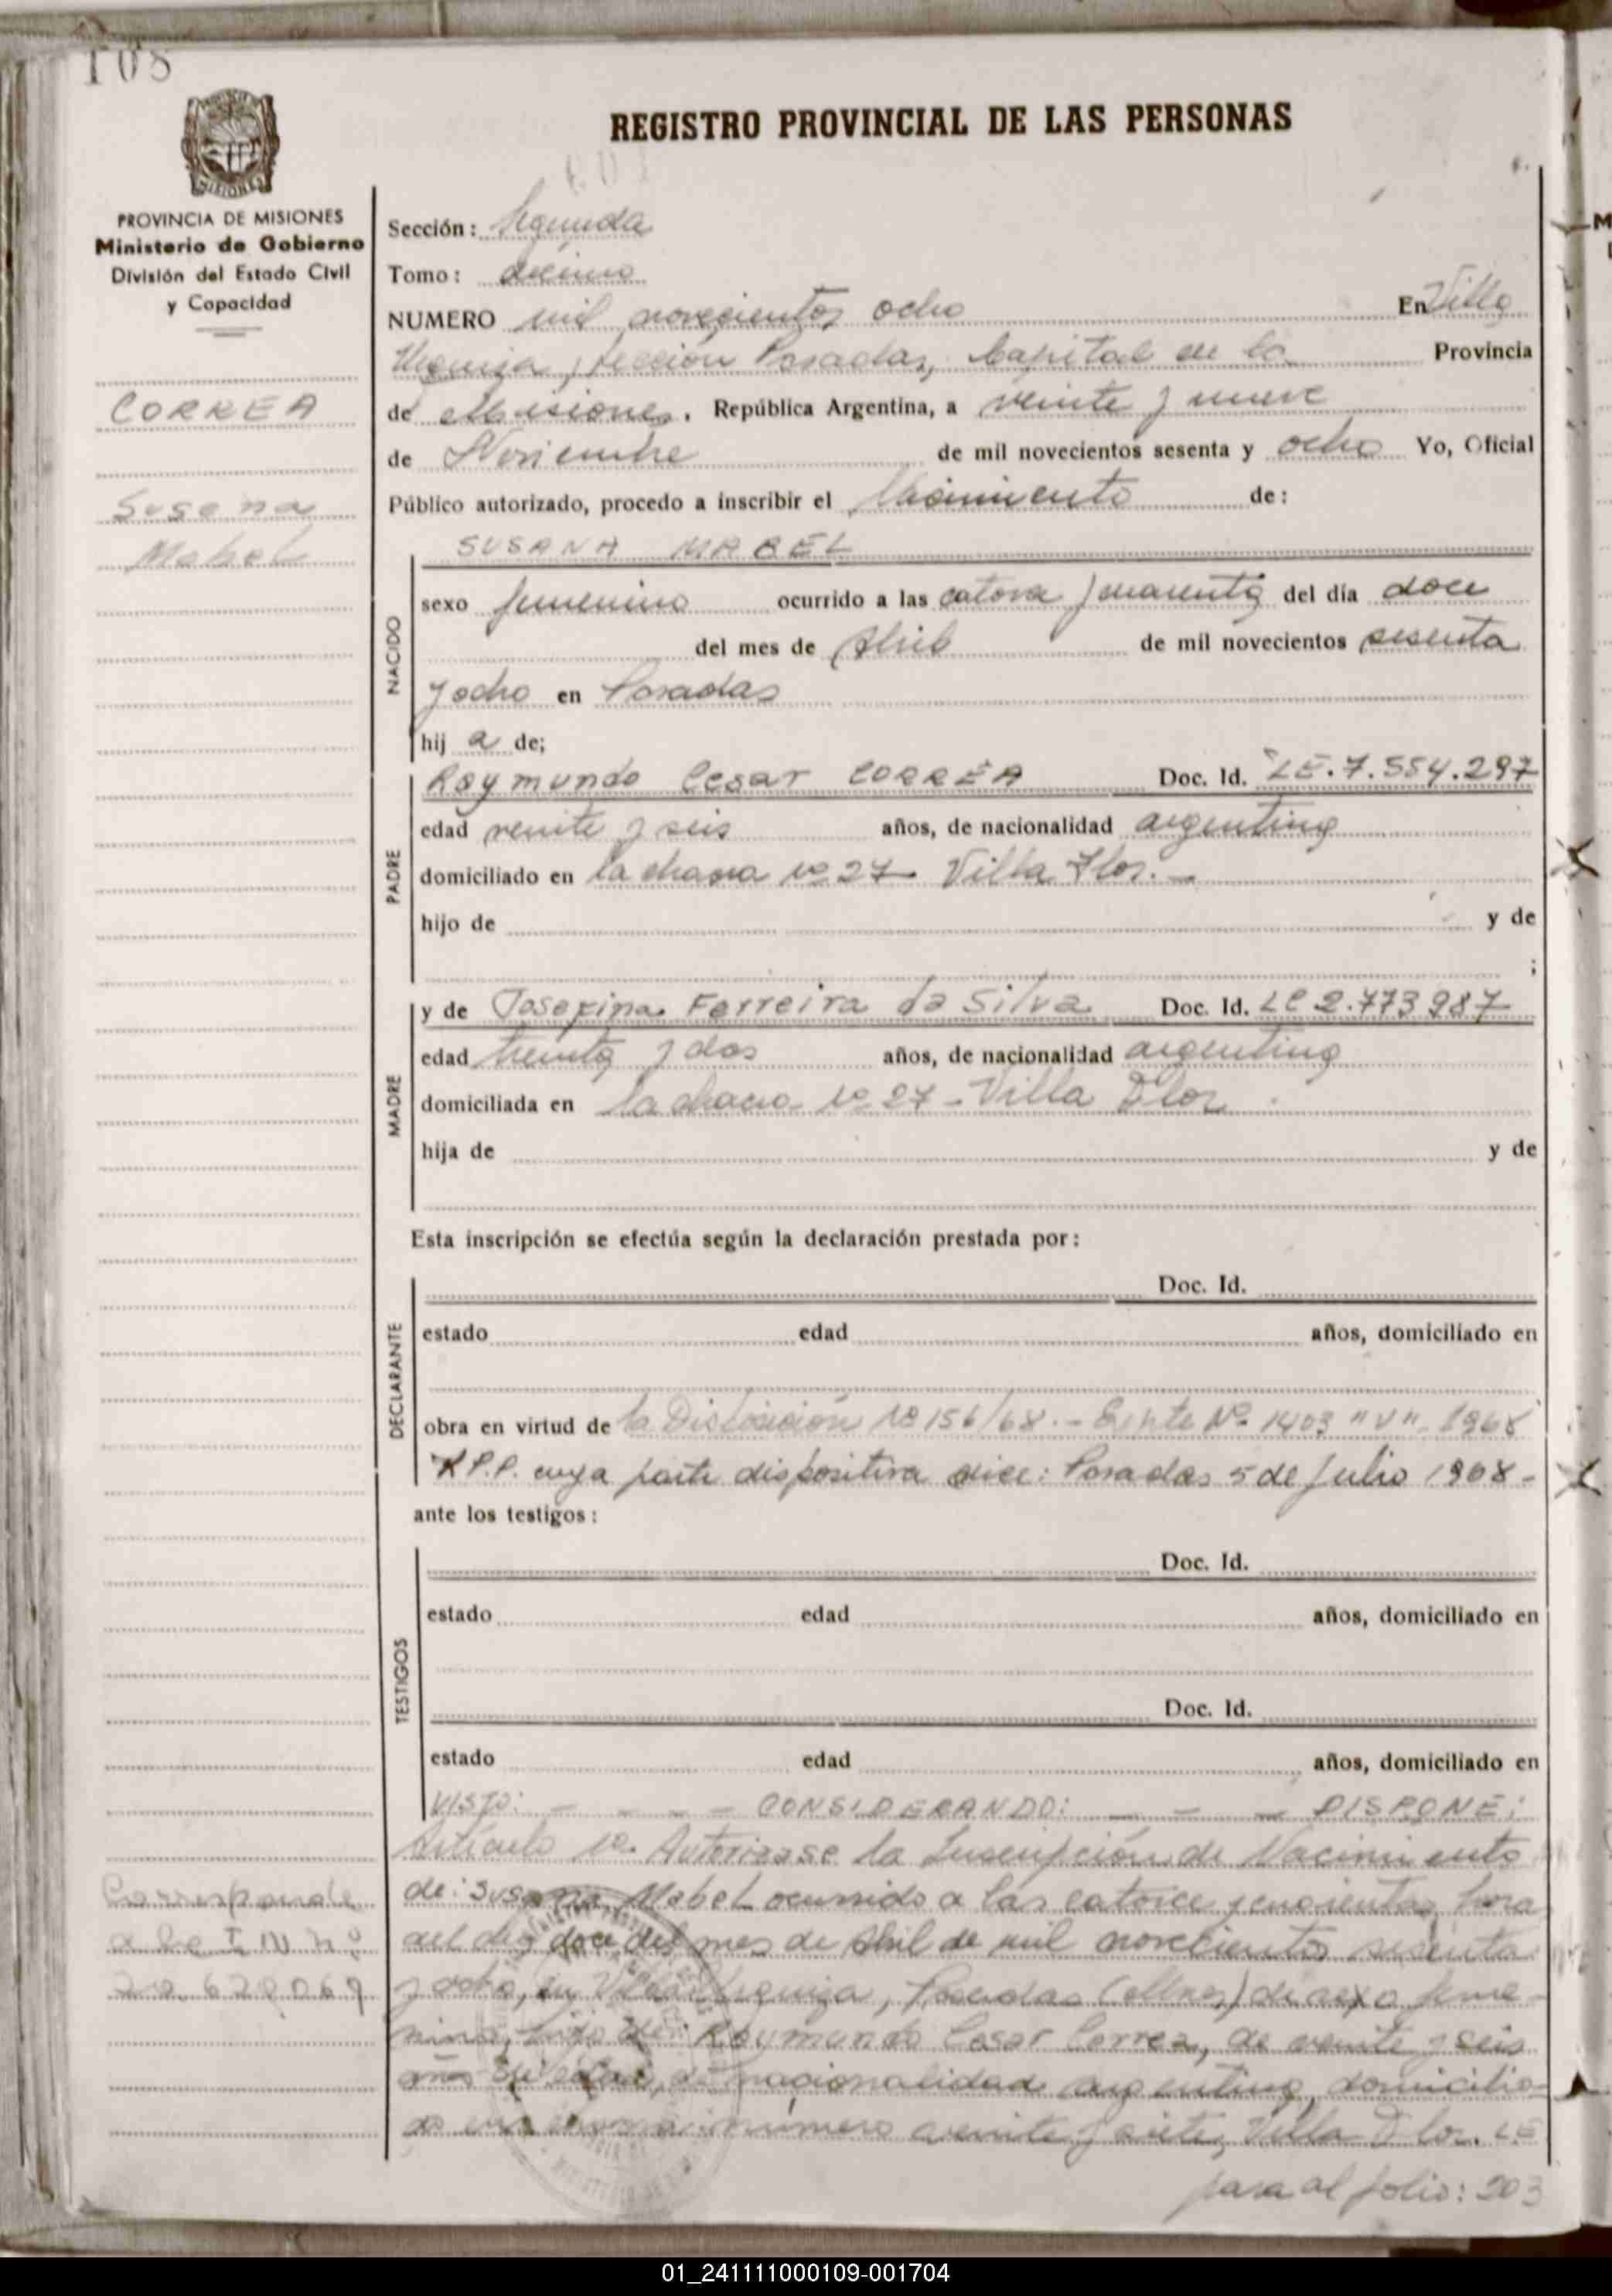 108
REGISTRO PROVINCIAL DE LAS PERSONAS
MISIONES
PROVINCIA DE MISIONES
Ministerio de Gobierno
División del Estado Civil
y Capacidad
CORREA
Susana
Mabel
Sección: Segunda
Tomo: décimo
NUMERO mil novecientos ocho En Villa
Urquiza, sección Posadas, Capital de la Provincia
de Misiones, República Argentina, a veinte y nueve
de Noviembre de mil novecientos sesenta y ocho Yo, Oficial
Público autorizado, procedo a inscribir el Nacimiento de:
NACIDO
SUSANA MABEL
sexo femenino ocurrido a las catorce y cuarenta del día doce
del mes de Abril de mil novecientos sesenta
y ocho en Posadas
hij a de;
PADRE
Raymundo Cesar CORREA Doc. Id. LE. 7.554.297
edad veinte y seis años, de nacionalidad argentina
domiciliado en la chacra no 27 Villa Flor.-
hijo de y de
;
MADRE
y de Josefina Ferreira da Silva Doc. Id. LC 2.773987
edad treinta y dos años, de nacionalidad argentina
domiciliada en la chacra no 27 - Villa Flor.
hija de y de
Esta inscripción se efectúa según la declaración prestada por:
DECLARANTE
Doc. Id.
estado edad años, domiciliado en
obra en virtud de la Disposición No 156/68.- Expte No. 1403 "V". 1968
R.P.P. cuya parte dispositiva dice: Posadas 5 de Julio 1968-
ante los testigos:
TESTIGOS
Doc. Id.
estado edad años, domiciliado en
Doc. Id.
estado edad años, domiciliado en
VISTO: - - - - CONSIDERANDO: - - - DISPONE:
Artículo 1o. Autorizase la Inscripción de Nacimiento
de: Susana Mabel ocurrido a las catorce y cuarenta hora
del dia doce del mes de Abril de mil novecientos sesenta
y ocho, en Villa Urquiza, Posadas (Mnes) de sexo feme-
nino, hija de: Raymundo Cesar Correa, de veinte y seis
años de edad, de nacionalidad argentina, domicilia-
do en chacra número veinte y siete, Villa Flor. LE
Corresponde
a la I N no
20.620069
pasa al folio: 203
01_241111000109-001704